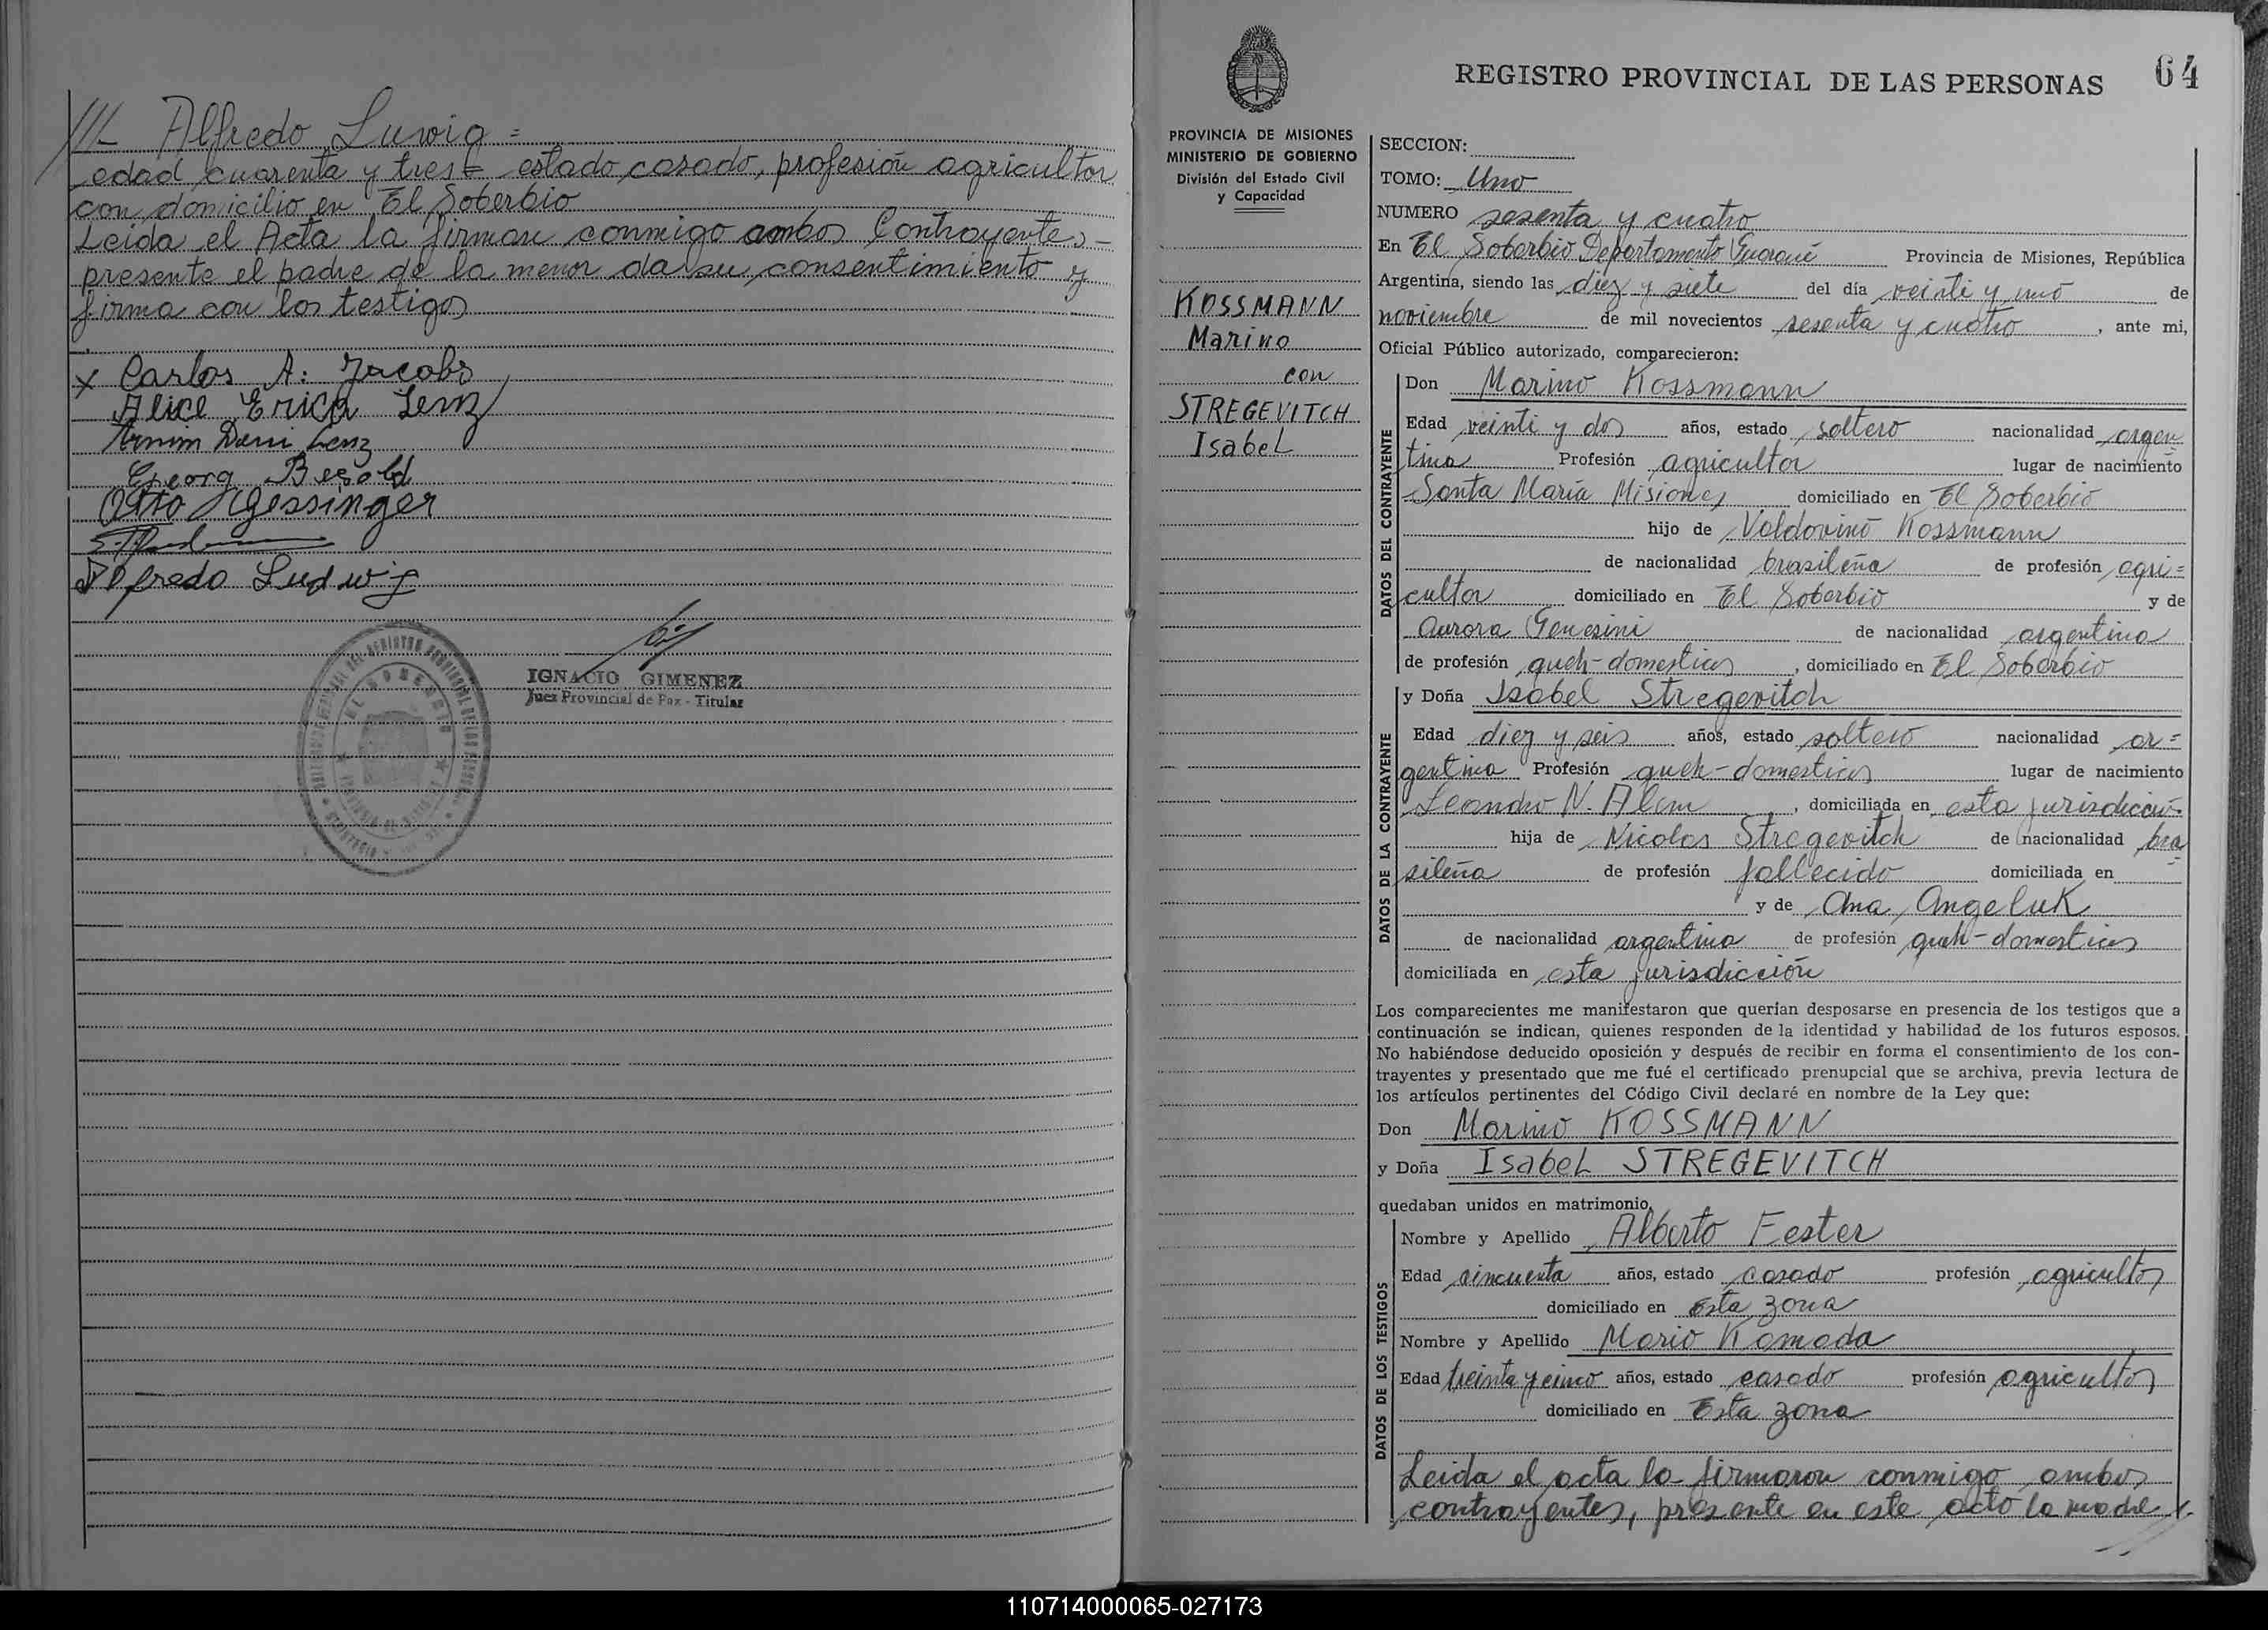 ///- Alfredo Luwig =
edad cuarenta y tres = estado casado, profesión agricultor
con domicilio en El Soberbio
Leida el Acta la firman conmigo ambos Contrayentes-
presente el padre de la menor da su consentimiento y
firma con los testigos
x Carlos A. Jacobs
Alice Erica Lenz
Armin Deni Lenz
Georg Besold
Otto Gessinger
Alfredo Ludwig
IGNACIO GIMENEZ
Juez Provincial de Paz - Titular
EL SOBERBIO
64
REGISTRO PROVINCIAL DE LAS PERSONAS
PROVINCIA DE MISIONES
MINISTERIO DE GOBIERNO
División del Estado Civil
y Capacidad
KOSSMANN
Marino
con
STREGEVITCH
Isabel
SECCION:
TOMO: Uno
NUMERO sesenta y cuatro
En El Soberbio Departamento Guaraní Provincia de Misiones, República
Argentina, siendo las diez y siete del día veinti y uno de
noviembre de mil novecientos sesenta y cuatro, ante mi,
Oficial Público autorizado, comparecieron:
DATOS DEL CONTRAYENTE
Don Marino Kossmann
Edad veinti y dos años, estado soltero nacionalidad argen
tina Profesión agricultor lugar de nacimiento
Santa María Misiones domiciliado en El Soberbio
hijo de Valdovino Kossmann
de nacionalidad brasileña de profesión agri=
cultor domiciliado en El Soberbio y de
Aurora Genesini de nacionalidad argentina
de profesión queh-domesticos, domiciliado en El Soberbio
DATOS DE LA CONTRAYENTE
y Doña Isabel Stregevitch
Edad diez y seis años, estado soltero nacionalidad ar=
gentina Profesión queh-domesticos lugar de nacimiento
Leandro N. Alem, domiciliada en esta jurisdicción-
hija de Nicolas Stregevitch de nacionalidad bra
sileña de profesión fallecido domiciliada en
y de Ana Angeluk
de nacionalidad argentina de profesión queh-domesticos
domiciliada en esta jurisdicción
Los comparecientes me manifestaron que querían desposarse en presencia de los testigos que a
continuación se indican, quienes responden de la identidad y habilidad de los futuros esposos.
No habiéndose deducido oposición y después de recibir en forma el consentimiento de los con-
trayentes y presentado que me fué el certificado prenupcial que se archiva, previa lectura de
los artículos pertinentes del Código Civil declaré en nombre de la Ley que:
Don Marino KOSSMANN
y Doña Isabel STREGEVITCH
quedaban unidos en matrimonio.
DATOS DE LOS TESTIGOS
Nombre y Apellido Alberto Fester
Edad cincuenta años, estado casado profesión agricultor
domiciliado en Esta zona
Nombre y Apellido Mario Kamada
Edad treinta y cinco años, estado casado profesión agricultor
domiciliado en Esta zona
Leida el acta la firmaron conmigo ambos
contrayentes, presente en este acto la madre
110714000065-027173